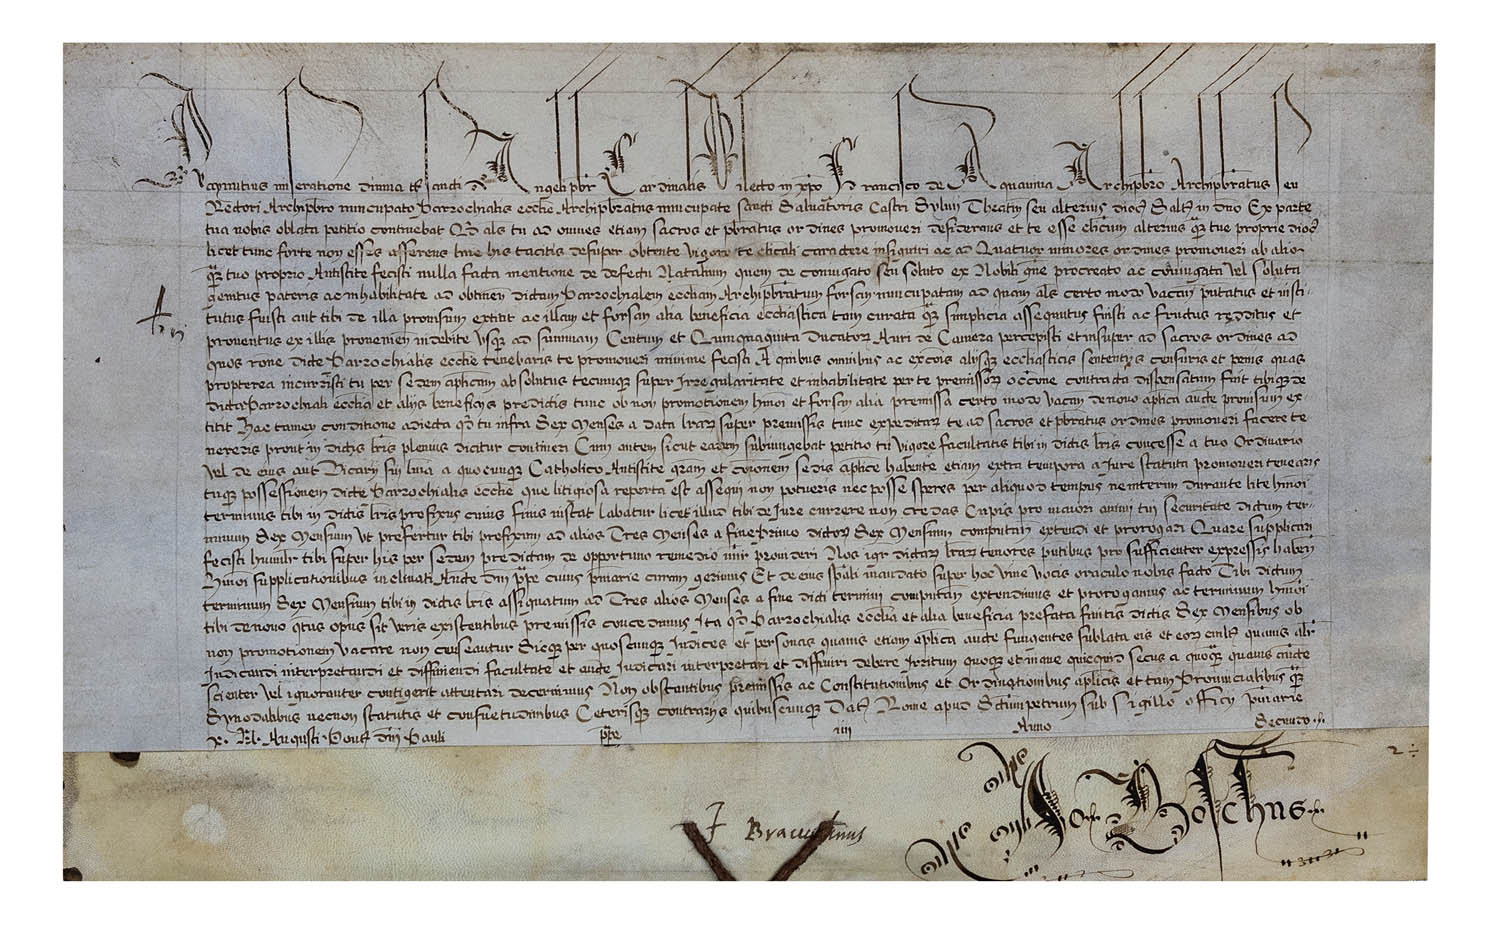 miseratione divina tt̄ sancti Angeli pbr̄ Cardinalis Dilecto in xpō Francisco de Aquaviva Archipbrō Archipbratus seu
Rectori Archipbrō nuncupato Parrochialis ecclīe Archipbratus nuncupate sancti Salvatoris Castri Theatin̄ seu alterius dioc̄ Salt̄ in dnō Ex parte
tua nobis oblata petitio continebat Qd̄ als tu ad omnes etiam sacros et pbratus ordines promoveri desiderans et te esse clicum alterius qr̄ tue proprie dioc̄
licet tunc forte non esses asserens lrīe his tacitis desuper obtente vigore te clicali caractere insigniri ac ad Quatuor minores ordines promoveri ab alio
qr̄ tuo proprio Antistite fecisti nulla facta mentione de defectu Natalium quem de coniugato seu soluto ex Nobili gñe procreato ac coniugata vel soluta
genitus pateris ac inhabilitate ad obtineñ dictam Parrochialem ecclīam Archipbratum forsan nuncupatam ad quam als certo modo vacañ putatus et insti-
tutus fuisti aut tibi de illa provisum extitit ac illam et forsan alia beneficia ecclīastica tam curata qr̄ simplicia assequutus fuisti ac fructus redditus et
proventus ex illis provenieñ indebite usq̄ ad summam Centum et Quinquaginta Ducator̄ Auri de Camera percepisti et insuper ad sacros ordines ad
quos rone dicte Parrochialis ecclīe tenebaris te promoveri minime fecisti A quibus omnibus ac excōis alijsq̄ ecclīasticis sententijs censuris et penis quas
propterea incurristi tu per sedem aplicam absolutus tecumq̄ super Irregularitate et inhabilitate per te premissor̄ occōne contracta dispensatum fuit tibiq̄ de
dicta Parrochiali ecclīa et alijs beneficijs predictis tunc ob non promotionem hmōi et forsan alia premissa certo modo vacañ de novo aplica aucte provisum ex-
titit Hac tamen conditione adiecta qd̄ tu infra Sex Menses a data lrar̄ super premissis tunc expeditar̄ te ad sacros et pbratus ordines promoveri facere te-
nereris prout in dictis lrīs plenius dicitur contineri Cum autem sicut eadem subiungebat petitio tu vigore facultatis tibi in dictis lrīs concesse a tuo Ordinario
vel de eius aut Vicarij sui lnīa a quocunq̄ Catholico Antistite gram et cōionem sedis aplice habente etiam extra tempora a Iure statuta promoveri tenearis
tuq̄ possessionem dicte Parrochialis ecclīe que litigiosa reperta est assequi non potueris nec posse speres per aliquod tempus ne interim durante lite hmōi
terminus tibi in dictis lrīs prefixus cuius finis instat labatur licet illud tibi de Iure currere non credas Cupis pro maiori animi tui securitate dictum ter-
minum Sex Mensium ut prefertur tibi prefixum ad alios Tres Menses a fine Primo dictor̄ Sex Mensium computañ extendi et prorogari Quare supplicari
fecisti humilr̄ tibi super his per sedem predictam de opportuno remedio mīr provideri Nos igr̄ dictar̄ lrar̄ tenores pntibus pro sufficienter expressis habeñ
Hmōi supplicationibus inclinati Aucte Dnī pp̄e cuius pnīarie curam gerimus Et de eius spāli mandato super hoc vive vocis oraculo nobis facto Tibi dictum
terminum Sex Mensium tibi in dictis lrīs assignatum ad Tres alios Menses a fine dicti termini computañ extendimus et prorogamus ac terminum hmōi
tibi de novo qtus opus sit veris existentibus premissis concedimus Ita qd̄ Parrochialis ecclīa et alia beneficia prefata finitis dictis Sex Mensibus ob
non promotionem vacare non censeantur Sicq̄ per quoscunq̄ Iudices et personas quavis etiam aplica aucte fungentes sublata eis et eor̄ cuilt̄ quavis alr̄
Iudicandi interpretandi et diffiniendi facultate et aucte Iudicari interpretari et diffiniri debere Irritum quoq̄ et inane quicquid secus a quoq̄ quavis aucte
scienter vel ignoranter contigerit attentari decernimus Non obstantibus premissis ac Constitutionibus et Ordinationibus aplicis et tam Provincialibus qr̄
Synodalibus necnon statutis et consuetudinibus Ceterisq̄ contrarijs quibuscunq̄ Dat̄ Rome apud Sctumpetrum sub sigillo officij pnīarie
x. Kl. Augusti Pont̄ Dnī Pauli pp̄e iii Anno Secundo
2
Jo. Boschus